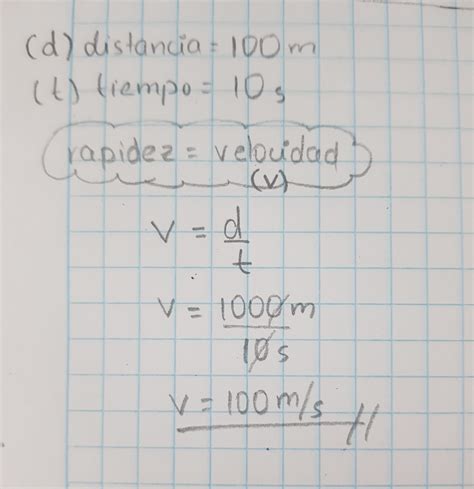 (d) distancia = 100 m
(t) tiempo = 10 s
rapidez = velocidad
(v)
V = d
t
V = 1000 m
10 s
V = 100 m/s //